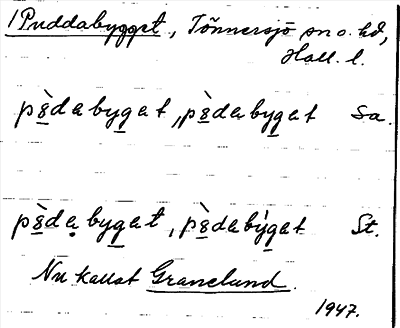 1 Puddabygget, Tönnersjö sn o. hd,
Hall. l.
pɵ̀dabygat, pɵ̀dabygat Sa.
pɵ̀dabygat, pɵ̀dabýgat St.
Nu kallat Granelund.
1947.